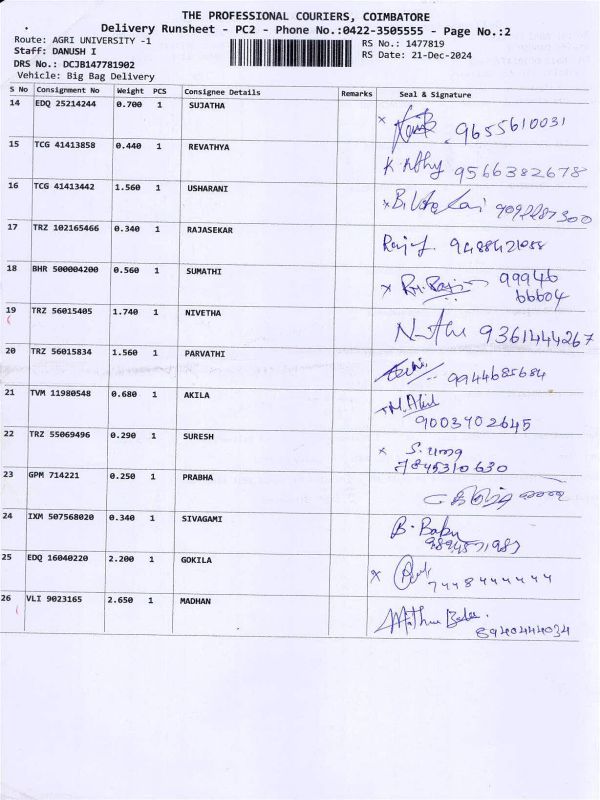 THE PROFESSIONAL COURIERS, COIMBATORE
Delivery Runsheet - PC2 - Phone No.:0422-3505555 - Page No.:2
Route: AGRI UNIVERSITY -1 RS No.: 1477819
Staff: DANUSH I RS Date: 21-Dec-2024
DRS No.: DCJB147781902
Vehicle: Big Bag Delivery
S No Consignment No Weight PCS Consignee Details Remarks Seal & Signature
14 EDQ 25214244 0.700 1 SUJATHA x 9655610031
15 TCG 41413858 0.440 1 REVATHYA 9566382678
16 TCG 41413442 1.560 1 USHARANI
17 TRZ 102165466 0.340 1 RAJASEKAR
18 BHR 500004200 0.560 1 SUMATHI x 99946
66604
19 TRZ 56015405 1.740 1 NIVETHA 9361444267
20 TRZ 56015834 1.560 1 PARVATHI 9944685684
21 TVM 11980548 0.680 1 AKILA
9003702645
22 TRZ 55069496 0.290 1 SURESH x
7845310630
23 GPM 714221 0.250 1 PRABHA
24 IXM 507568020 0.340 1 SIVAGAMI B. Babu
25 EDQ 16040220 2.200 1 GOKILA x 7448444444
26 VLI 9023165 2.650 1 MADHAN
8940444034